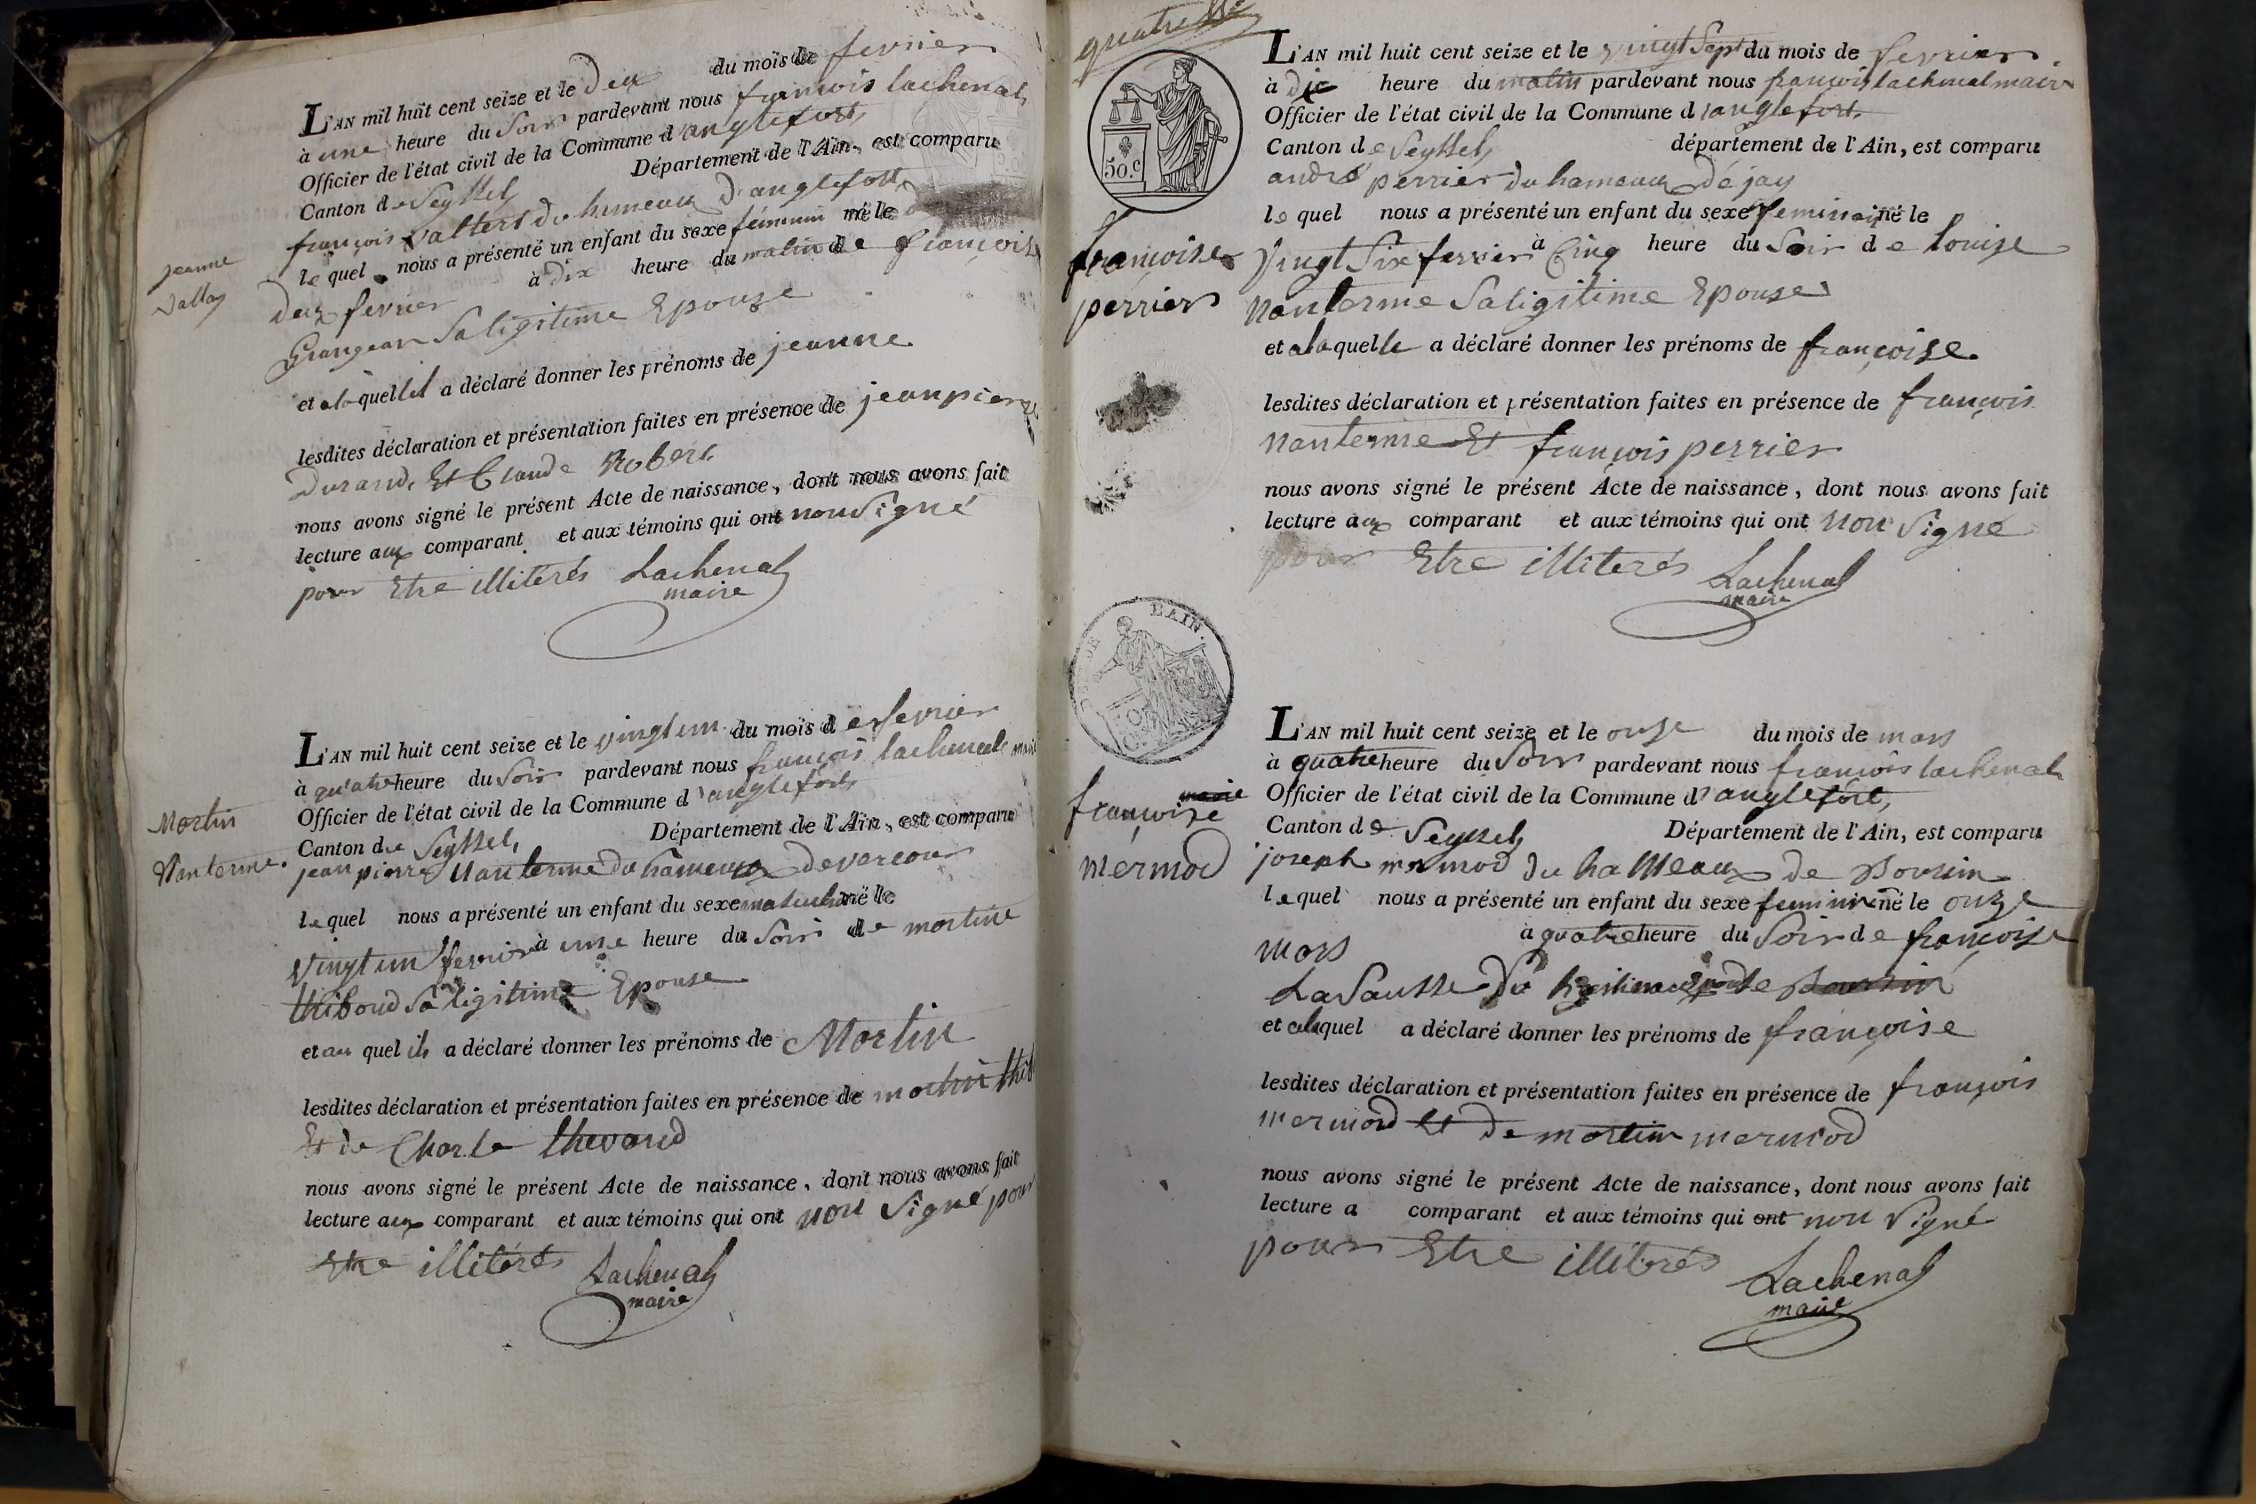 jeanne
vallay
L'AN mil huit cent seize et le deux du mois de fevrier
à une heure du Soir pardevant nous francois lachenal
Officier de l'état civil de la Commune d'anglefort
Canton de Seyssel Département de l'Ain, est comparu
françois du hameaux d'anglefort
le quel nous a présenté un enfant du sexe féminin né le
deux fevrier à dix heure du matin de françoise
Grangean Sa ligitime Epouze
et a la quelle il a déclaré donner les prénoms de jeanne
lesdites déclaration et présentation faites en présence de jean pierre
Durand Et Claude Robert
nous avons signé le présent Acte de naissance, dont nous avons fait
lecture aux comparant et aux témoins qui ont non Signé
pour Etre illiterés Lachenal
maire
Martin
Nanterme
L'AN mil huit cent seize et le vingt un du mois de fevrier
à quatre heure du Soir pardevant nous françois lachenal maire
Officier de l'état civil de la Commune d'anglefort
Canton de Seyssel Département de l'Ain, est comparu
jean pierre Nanterme du hameaux de vorcour
le quel nous a présenté un enfant du sexe masculin né le
vingt un fevrier à une heure du Soir de martine
thiboud Sa ligitime Epouse
et au quel ils a déclaré donner les prénoms de Martin
lesdites déclaration et présentation faites en présence de martin thib
Et de Charle thevand
nous avons signé le présent Acte de naissance, dont nous avons fait
lecture aux comparant et aux témoins qui ont non Signé pour
Etre illitérés Lachenal
maire
quatre
50.c
françoise
perrier
L'AN mil huit cent seize et le vingt Sept du mois de fevrier
à dix heure du matin pardevant nous françois lachenal maire
Officier de l'état civil de la Commune d'anglefort
Canton de Seyssel département de l'Ain, est comparu
andré perrier du hameaux déjay
le quel nous a présenté un enfant du sexe feminain né le
Vingt Six fevrier à Cinq heure du Soir de louise
Nanterme Sa ligitime Epouse
et a la quelle a déclaré donner les prénoms de françoise
lesdites déclaration et présentation faites en présence de françois
Nanterme Et françois perrier
nous avons signé le présent Acte de naissance, dont nous avons fait
lecture aux comparant et aux témoins qui ont non Signé
pour Etre illiterés Lachenal
maire
françoise
mermod
L'AN mil huit cent seize et le onze du mois de mars
à quatre heure du Soir pardevant nous françois lachenal
Officier de l'état civil de la Commune d'anglefort
Canton de Seyssel Département de l'Ain, est comparu
joseph mermod du hameaux de
le quel nous a présenté un enfant du sexe feminin né le onze
mars à quatre heure du Soir de françoise
LaSausse
et a la quel a déclaré donner les prénoms de françoise
lesdites déclaration et présentation faites en présence de françois
mermod Et de martin mermod
nous avons signé le présent Acte de naissance, dont nous avons fait
lecture a comparant et aux témoins qui ont non Signé
pour Etre illitérés Lachenal
maire